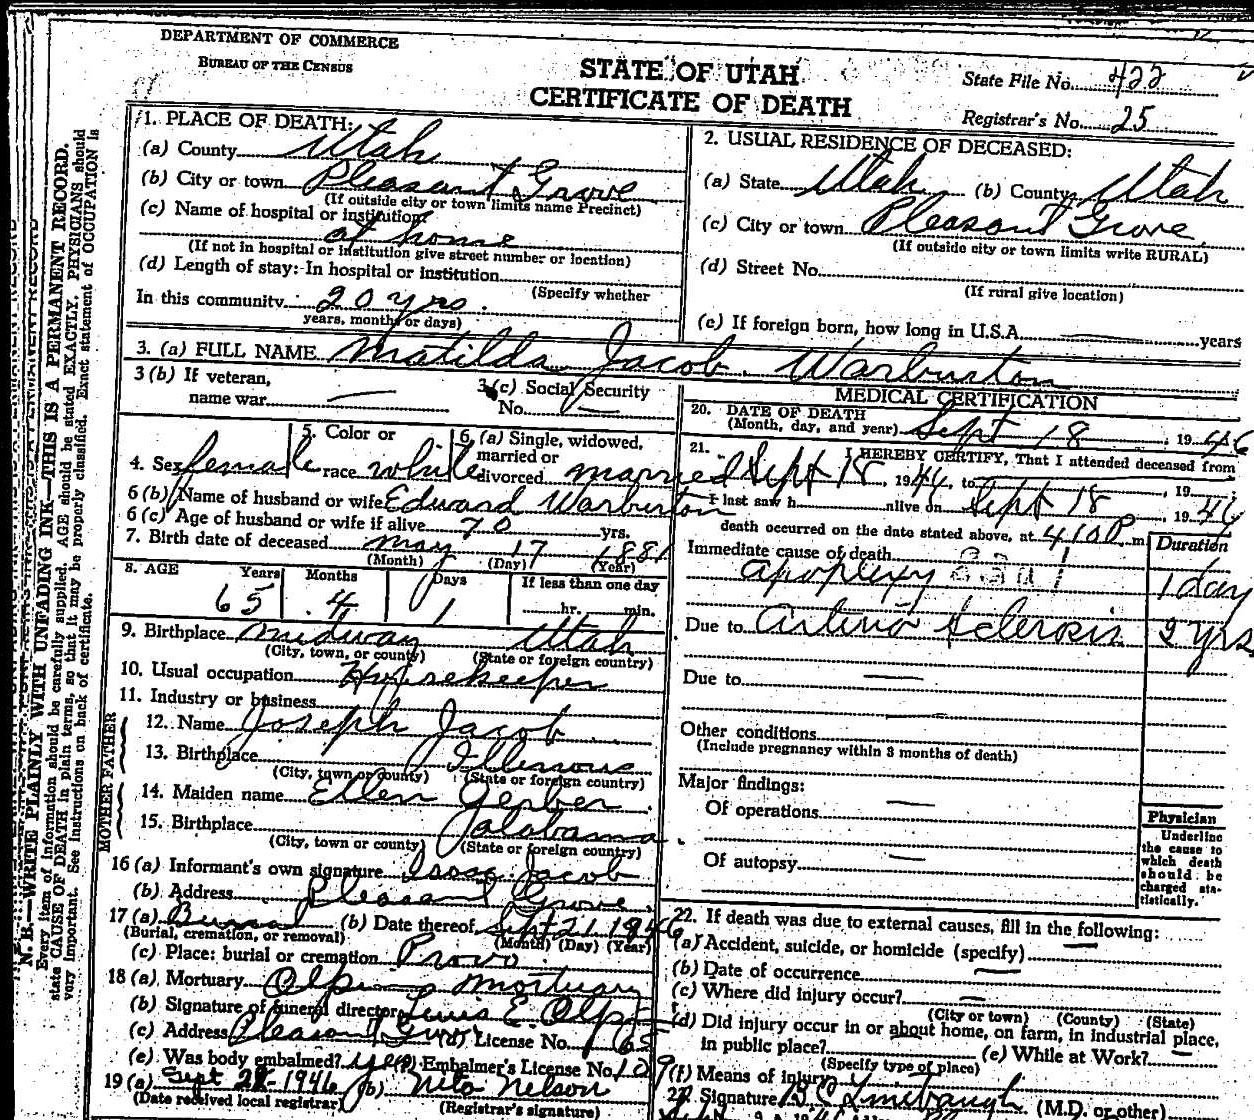 DEPARTMENT OF COMMERCE
BUREAU OF THE CENSUS
STATE OF UTAH
CERTIFICATE OF DEATH
State File No. 422
Registrar's No. 25
N. B.—WRITE PLAINLY WITH UNFADING INK—THIS IS A PERMANENT RECORD.
Every item of information should be carefully supplied. AGE should be stated EXACTLY. PHYSICIANS should
state CAUSE OF DEATH in plain terms, so that it may be properly classified. Exact statement of OCCUPATION is
very important. See instructions on back of certificate.
1. PLACE OF DEATH:
(a) County Utah
(b) City or town Pleasant Grove
(If outside city or town limits name Precinct)
(c) Name of hospital or institution
at home
(If not in hospital or institution give street number or location)
(d) Length of stay: In hospital or institution
(Specify whether
In this community 20 yrs.
years, months or days)
2. USUAL RESIDENCE OF DECEASED:
(a) State Utah (b) County Utah
(c) City or town Pleasant Grove
(If outside city or town limits write RURAL)
(d) Street No.
(If rural give location)
(e) If foreign born, how long in U.S.A. — years
3. (a) FULL NAME Matilda Jacob Warburton
3 (b) If veteran,
name war —
3 (c) Social Security
No. —
4. Sex female
5. Color or
race white
6. (a) Single, widowed,
married or
divorced married
6 (b) Name of husband or wife Edward Warburton
6 (c) Age of husband or wife if alive 70 yrs.
7. Birth date of deceased May 17 1881
(Month) (Day) (Year)
8. AGE Years Months Days If less than one day
65 4 1 hr. min.
9. Birthplace Midway Utah
(City, town, or county) (State or foreign country)
10. Usual occupation Housekeeper
11. Industry or business
FATHER
12. Name Joseph Jacob
13. Birthplace Illenous
(City, town or county) (State or foreign country)
MOTHER
14. Maiden name Ellen Gerber
15. Birthplace Jalabama
(City, town, or county) (State or foreign country)
16 (a) Informant's own signature Isaac Jacob
(b) Address Pleasant Grove
17 (a) Burial (b) Date thereof Sept 21 1946
(Burial, cremation, or removal) (Month) (Day) (Year)
(c) Place: burial or cremation Provo
18 (a) Mortuary Olpin Mortuary
(b) Signature of funeral director Lewis E. Olpin
(c) Address Pleasant Grove License No. 65
(e) Was body embalmed? yes Embalmer's License No.
19 (a) Sept 1946 (b) Nelson
(Date received local registrar) (Registrar's signature)
MEDICAL CERTIFICATION
20. DATE OF DEATH
(Month, day, and year) Sept 18, 1946
21. I HEREBY CERTIFY, That I attended deceased from
Sept 18, 1944, to Sept 18, 19
I last saw h alive on 1946
death occurred on the date stated above, at 4:10 P. m.
Duration
Immediate cause of death
apoplexy 1 day
Due to Arterio Sclerosis 2 yrs
Due to —
—
Other conditions
(Include pregnancy within 3 months of death)
Major findings:
Of operations —
Of autopsy —
Physician
Underline
the cause to
which death
should be
charged sta-
tistically.
22. If death was due to external causes, fill in the following:
(a) Accident, suicide, or homicide (specify) —
(b) Date of occurrence —
(c) Where did injury occur? —
(City or town) (County) (State)
(d) Did injury occur in or about home, on farm, in industrial place,
in public place? (e) While at Work? —
(Specify type of place)
(f) Means of injury
23. Signature (M.D. or other)